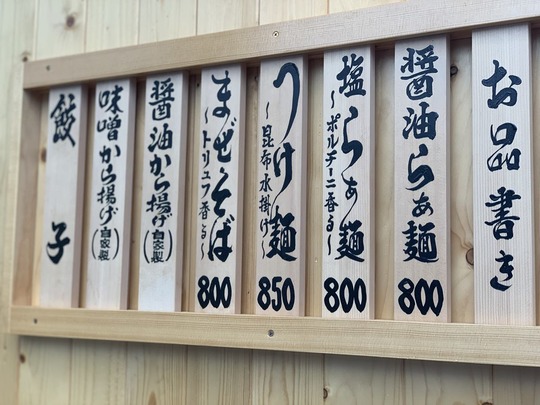 お品書き
醤油らぁ麺
800
塩らぁ麺
〜ポルチーニ香る〜
800
つけ麺
〜昆布水掛け〜
850
まぜそば
〜トリュフ香る〜
800
醤油から揚げ(自家製)
味噌から揚げ(自家製)
餃子